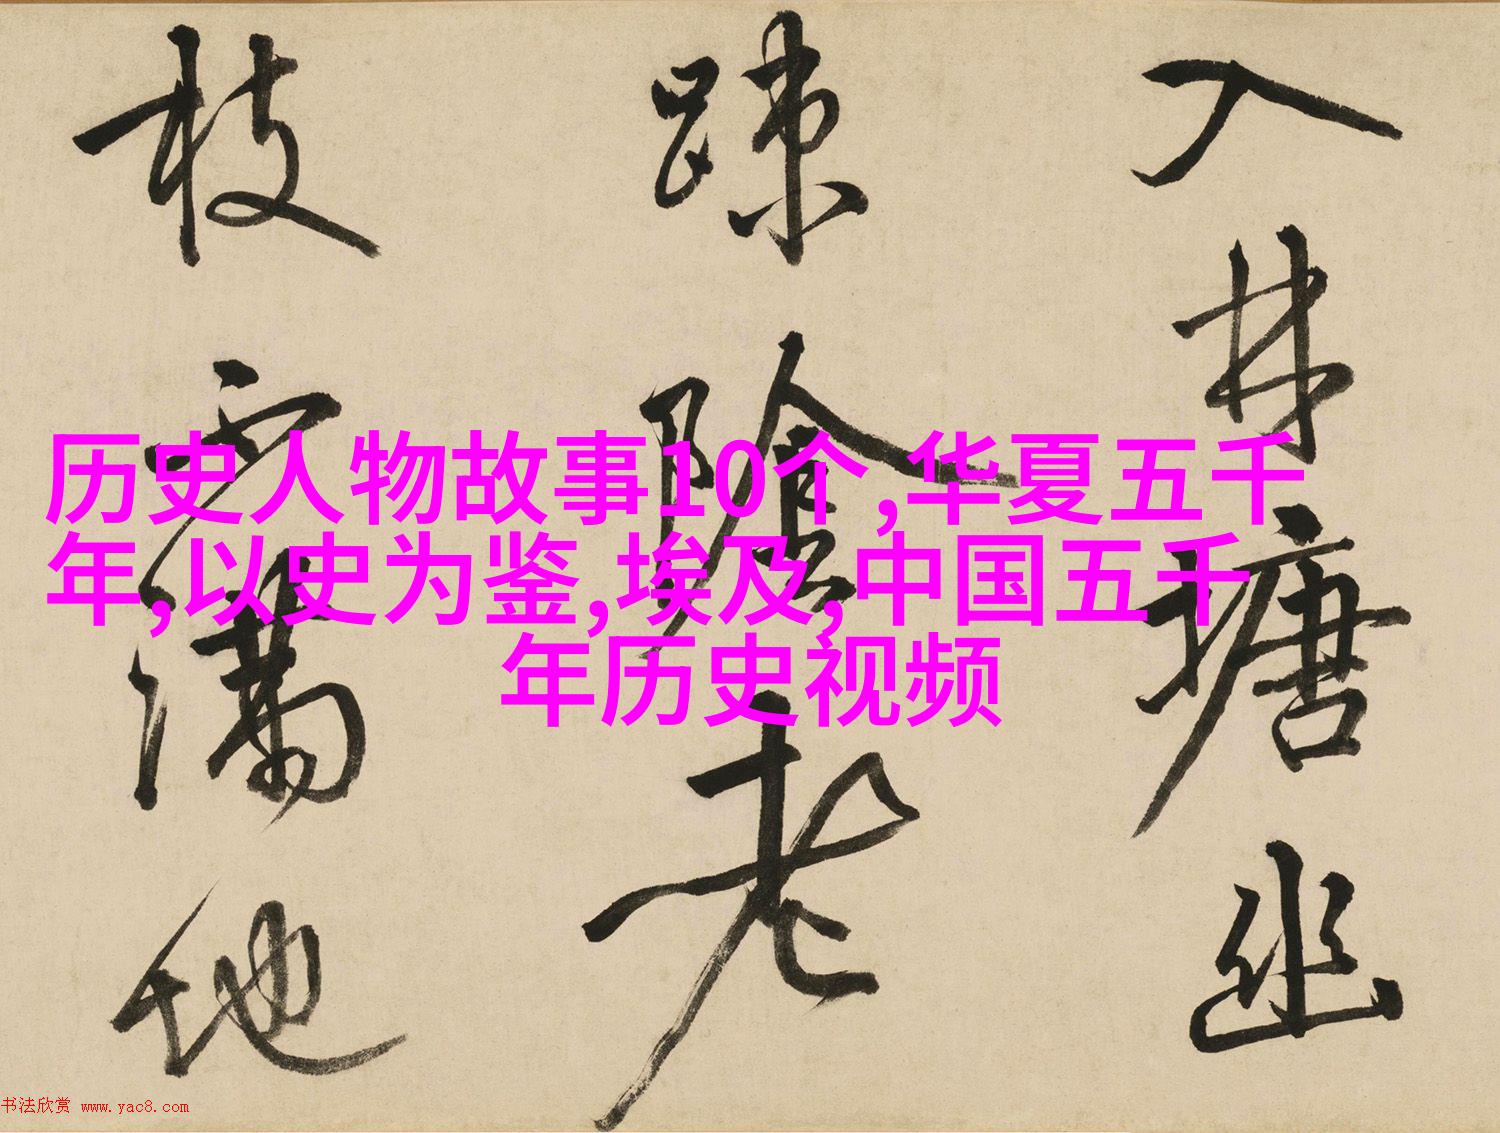 历史人物故事10个,华夏五千
年,以史为鉴,埃及,中国五千
年历史视频
入林塘幽
踈陰老
枝滿地
书法欣赏 www.yac8.com